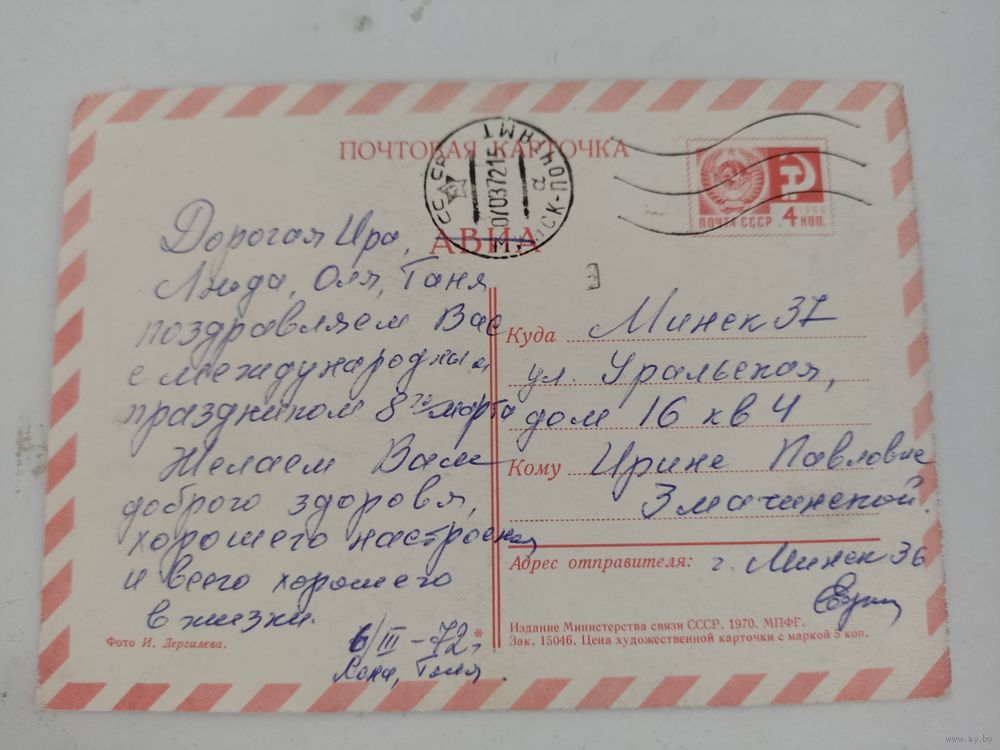 ПОЧТОВАЯ КАРТОЧКА
АВИА
СССР
МИНСК-ПОЧТАМТ
07037215
а
ПОЧТА СССР
1966
4 КОП.
Дорогая Ира,
Люда, Оля, Таня
поздравляем Вас
с международным
праздником 8го марта
Желаем Вам
доброго здоровя,
хорошего настроения
и всего хорошего
в жизни.
6/III-72г.
Толя.
Фото И. Дергилева.
Куда Минск 37
ул. Уральская,
дом 16 кв 4
Кому Ирине Павловне
Змачинской.
Адрес отправителя: г. Минск 36
Издание Министерства связи СССР. 1970. МПФГ.
Зак. 15046. Цена художественной карточки с маркой 5 коп.
www.ay.by